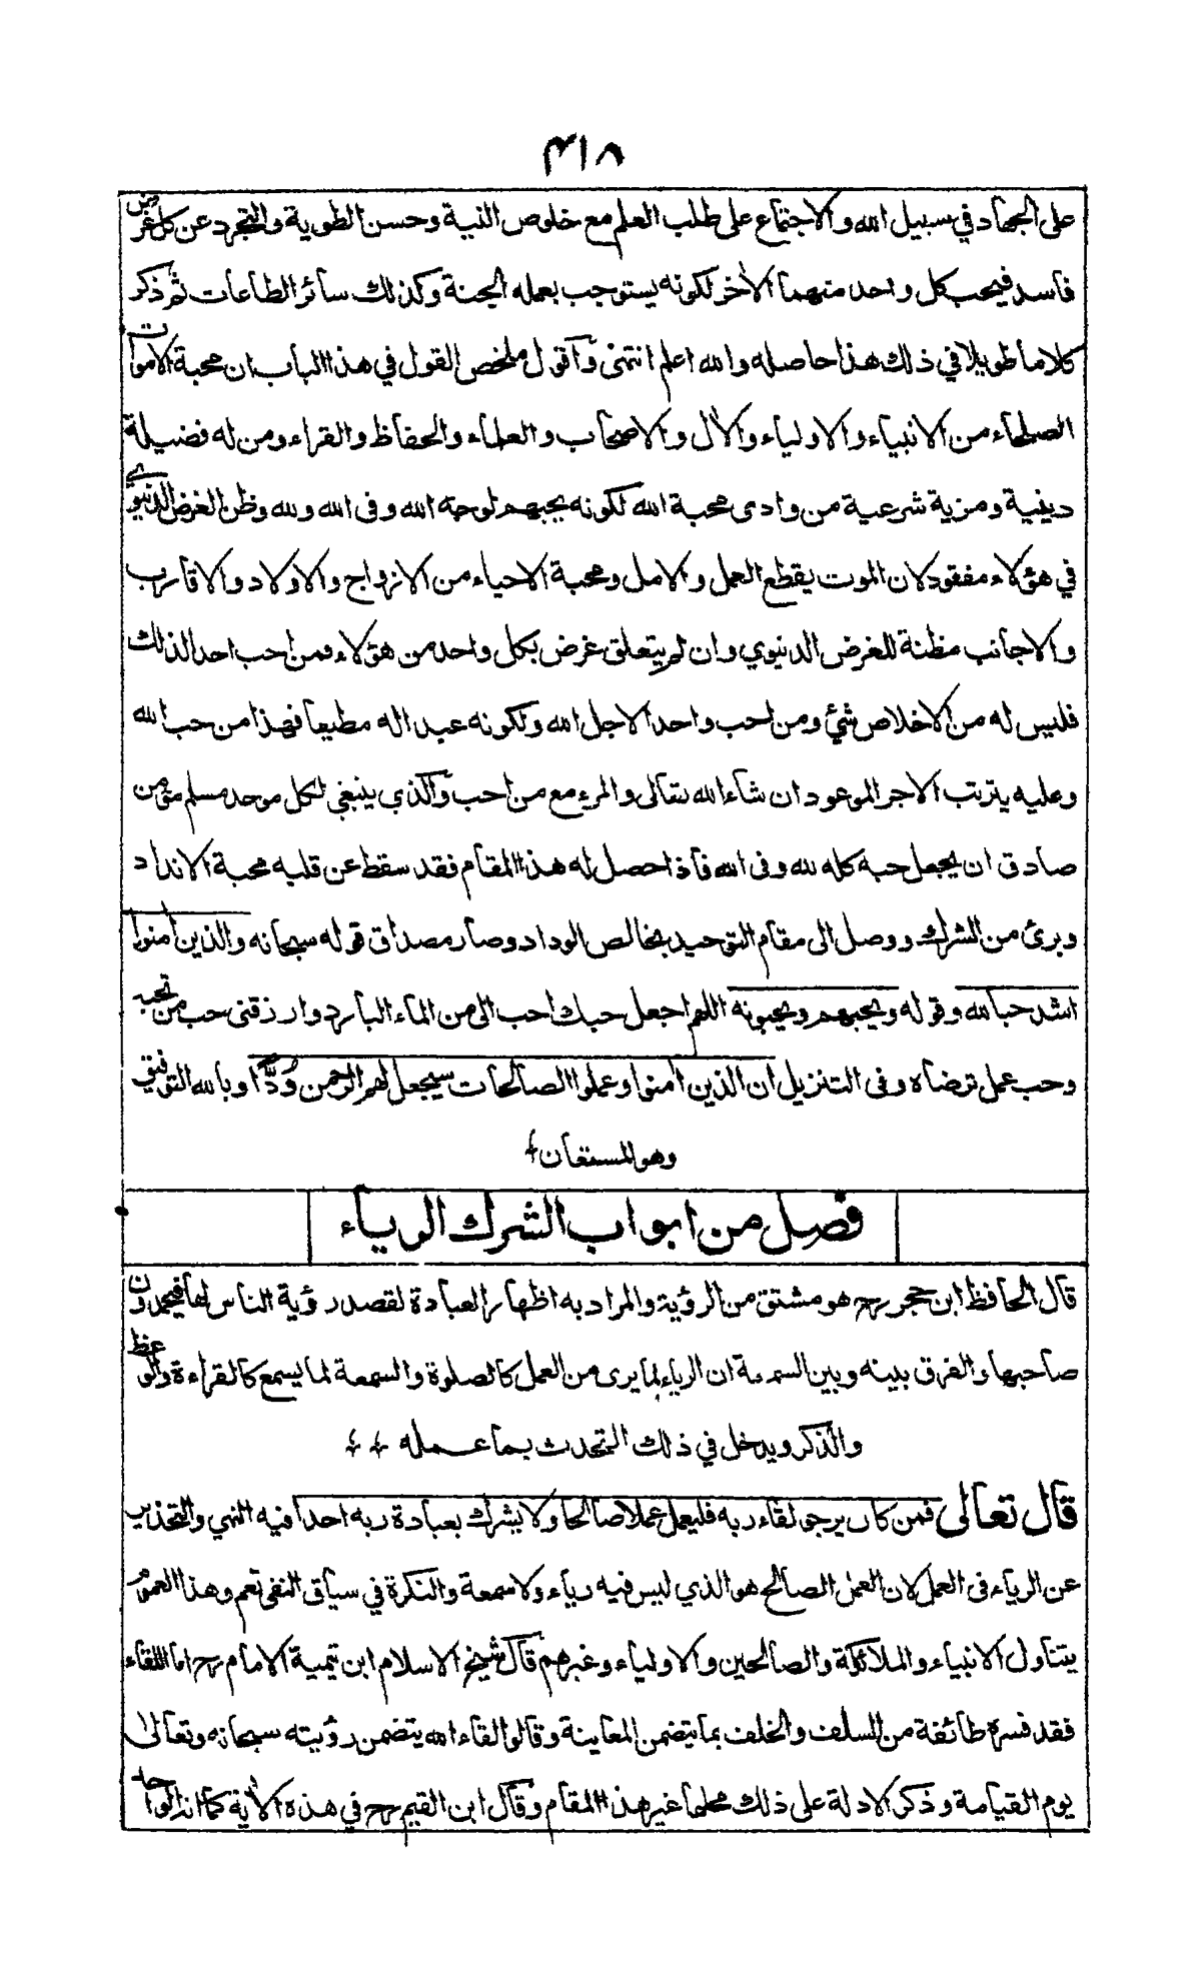 ٤١٨
على الجهاد في سبيل الله والاجتماع على طلب العلم مع خلوص النية وحسن الطوية والتجرد عن كل غرض
فاسد فيحب كل واحد منهما الأخر لكونه يستوجب بعمله الجنة وكذلك سائر الطاعات ثم ذكر
كلاما طويلا في ذلك هذا حاصله والله اعلم انتهى وآقول ملخص القول في هذا الباب ان محبة الاموات
الصلحاء من الانبياء والاولياء والآل والاصحاب والعلماء والحفاظ والقراء ومن له فضيلة
دينية ومزية شرعية من وادى محبة الله لكونه يحبهم لوجه الله وفى الله ولله وظن الغرض الدنيوي
في هؤلاء مفقود لان الموت يقطع العمل والامل ومحبة الاحياء من الازواج والاولاد والاقارب
والاجانب مظنة للغرض الدنيوي وان لم يتعلق غرض بكل واحد من هؤلاء فمن احب احدا لذلك
فليس له من الاخلاص شئ ومن احب واحدا لاجل الله ولكونه عبدا له مطيعا فهذا من حب الله
وعليه يترتب الاجر الموعود ان شاء الله تعالى والمرء مع من احب وآلذي ينبغي لكل موحد مسلم مؤمن
صادق ان يجعل حبه كله لله وفى الله فاذا حصل له هذا المقام فقد سقط عن قلبه محبة الانداد
وبرئ من الشرك ووصل الى مقام التوحيد بخالص الوداد وصار مصداق قوله سبحانه والذين أمنوا
اشد حبا لله وقوله ويحبهم ويحبونه اللهم اجعل حبك احب الى من الماء البارد وارزقنى حب من تحبه
وحب عمل ترضاه وفى التنزيل ان الذين أمنوا وعملوا الصالحات سيجعل لهم الرحمن وُدًّا وبالله التوفيق
وهو المستعان
فصل من ابواب الشرك الرياء
قال الحافظ ابن حجر رح هو مشتق من الرؤية والمراد به اظهار العبادة لقصد رؤية الناس لها فيحمدون
صاحبها والفرق بينه وبين السمعة ان الرياء لما يرى من العمل كالصلوة والسمعة لما يسمع كالقراءة والوعظ
والذكر ويدخل في ذلك التحدث بما عمله
قال تعالى فمن كان يرجو لقاء ربه فليعمل عملا صالحا ولا يشرك بعبادة ربه احدا فيه النهي والتحذير
عن الرياء فى العمل لان العمل الصالح هو الذي ليس فيه رياء ولا سمعة والنكرة في سياق النفى تعم وهذا العموم
يتناول الانبياء والملائكة والصالحين والاولياء وغيرهم قآل شيخ الاسلام ابن تيمية الامام رح اما اللقاء
فقد فسره طائفة من السلف والخلف بما يتضمن المعاينة وقالوا لقاء الله يتضمن رؤيته سبحانه وتعالى
يوم القيامة وذكر الادلة على ذلك محلها غير هذا المقام وقآل ابن القيم رح في هذه الأية كما انه الواحد